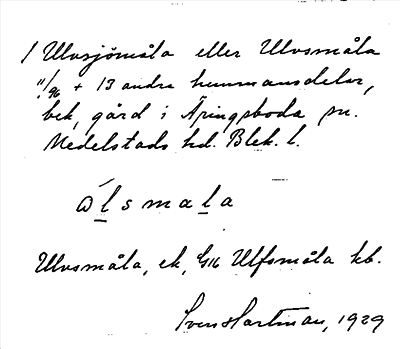 1 Ulvsjömåla eller Ulvsmåla
11/96 + 13 andra hemmansdelar,
bek. gård i Äringsboda sn.
Medelstads hd. Blek. l.
ålsmala
Ulvsmåla, ek, G16 Ulfsmåla kb.
Sven Hartman, 1929